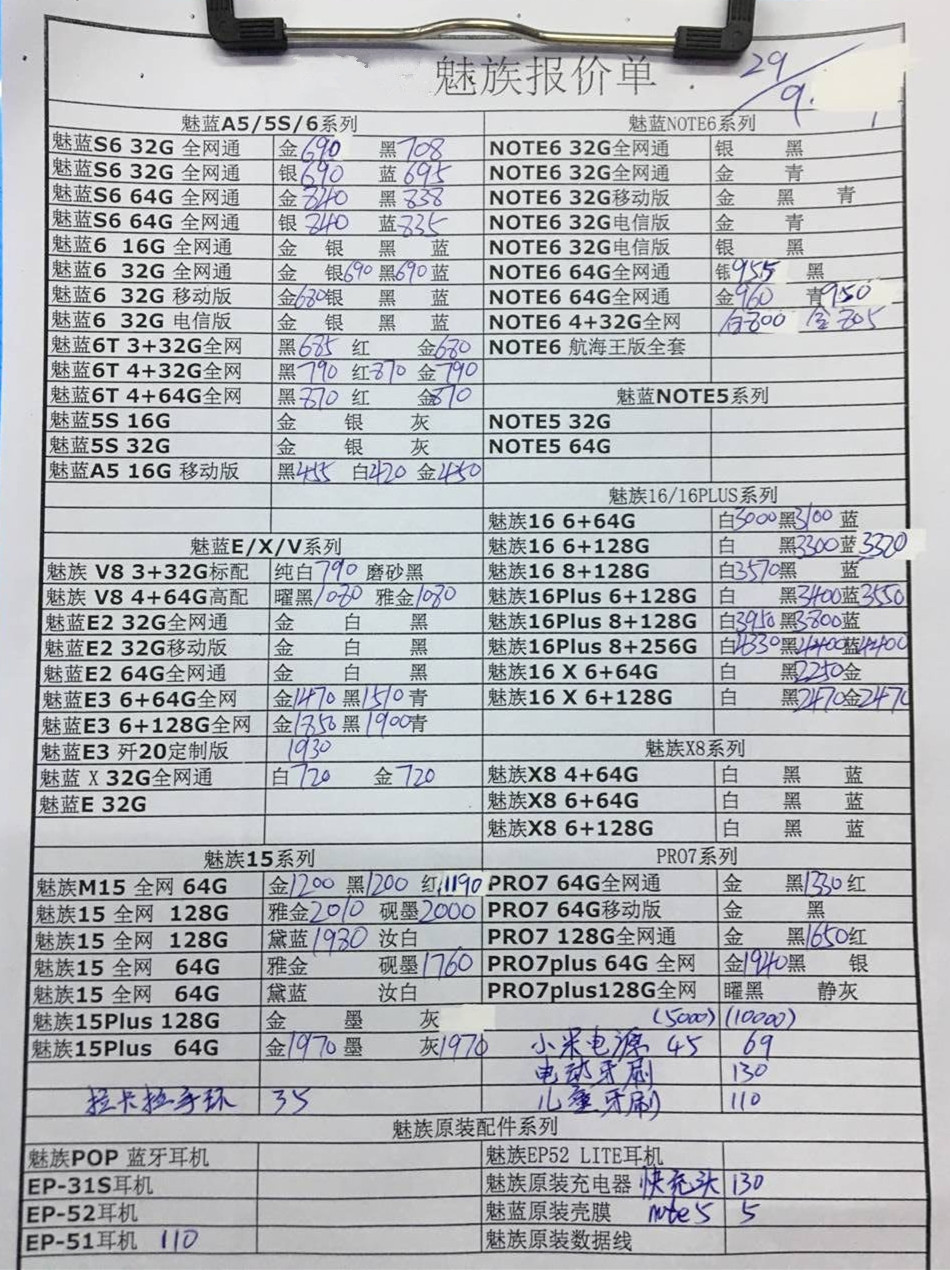 魅族报价单
29/9.
魅蓝A5/5S/6系列
魅蓝S6 32G 全网通 金690 黑708
魅蓝S6 32G 全网通 银690 蓝695
魅蓝S6 64G 全网通 金840 黑838
魅蓝S6 64G 全网通 银840 蓝835
魅蓝6 16G 全网通 金 银 黑 蓝
魅蓝6 32G 全网通 金 银690 黑690 蓝
魅蓝6 32G 移动版 金630银 黑 蓝
魅蓝6 32G 电信版 金 银 黑 蓝
魅蓝6T 3+32G全网 黑685 红 金680
魅蓝6T 4+32G全网 黑790 红870 金790
魅蓝6T 4+64G全网 黑870 红 金870
魅蓝5S 16G 金 银 灰
魅蓝5S 32G 金 银 灰
魅蓝A5 16G 移动版 黑455 白420 金450
魅蓝E/X/V系列
魅族 V8 3+32G标配 纯白790 磨砂黑
魅族 V8 4+64G高配 曜黑1080 雅金1080
魅蓝E2 32G全网通 金 白 黑
魅蓝E2 32G移动版 金 白 黑
魅蓝E2 64G全网通 金 白 黑
魅蓝E3 6+64G全网 金1470 黑1510 青
魅蓝E3 6+128G全网 金1850 黑1900青
魅蓝E3 歼20定制版 1930
魅蓝 X 32G全网通 白720 金720
魅蓝E 32G
魅族15系列
魅族M15 全网 64G 金1200 黑1200 红1190
魅族15 全网 128G 雅金2010 砚墨2000
魅族15 全网 128G 黛蓝1930 汝白
魅族15 全网 64G 雅金 砚墨1760
魅族15 全网 64G 黛蓝 汝白
魅族15Plus 128G 金 墨 灰
魅族15Plus 64G 金1970墨 灰1970
拉卡拉手环 35
魅蓝NOTE6系列
NOTE6 32G全网通 银 黑
NOTE6 32G全网通 金 青
NOTE6 32G移动版 金 黑 青
NOTE6 32G电信版 金 青
NOTE6 32G电信版 银 黑
NOTE6 64G全网通 银955 黑
NOTE6 64G全网通 金960 青950
NOTE6 4+32G全网 白800 金805
NOTE6 航海王版全套
魅蓝NOTE5系列
NOTE5 32G
NOTE5 64G
魅族16/16PLUS系列
魅族16 6+64G 白3000黑3100 蓝
魅族16 6+128G 白 黑3300蓝3320
魅族16 8+128G 白3570黑 蓝
魅族16Plus 6+128G 白 黑3400蓝3550
魅族16Plus 8+128G 白3950黑3800蓝
魅族16Plus 8+256G 白4330黑4400蓝4400
魅族16 X 6+64G 白 黑2250金
魅族16 X 6+128G 白 黑2470金2470
魅族X8系列
魅族X8 4+64G 白 黑 蓝
魅族X8 6+64G 白 黑 蓝
魅族X8 6+128G 白 黑 蓝
PRO7系列
PRO7 64G全网通 金 黑1330红
PRO7 64G移动版 金 黑
PRO7 128G全网通 金 黑1650红
PRO7plus 64G 全网 金1940黑 银
PRO7plus128G全网 曜黑 静灰
(5000) (10000)
小米电源 45 69
电动牙刷 130
儿童牙刷 110
魅族原装配件系列
魅族POP 蓝牙耳机 魅族EP52 LITE耳机
EP-31S耳机 魅族原装充电器 快充头 130
EP-52耳机 魅蓝原装壳膜 note5 5
EP-51耳机 110 魅族原装数据线